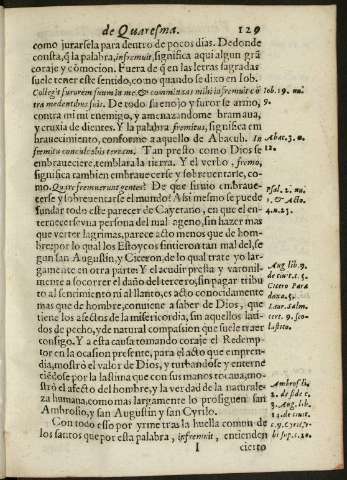 de Quaresma. 129
como jurarsela para dentro de pocos dias. De donde
consta, q̃ la palabra, infremuit, significa aqui algun grã
coraje y cõmocion. Fuera de q̃ en las letras sagradas
suele tener este sentido, como quando se dixo en Iob.
Collegit furorem suum in me, & comminatus mihi infremuit cõ
tra me dentibus suis. De todo su enojo y furor se armo,
contra mi mi enemigo, y amenazandome bramaua,
y cruxia de dientes. Y la palabra fremitus, significa em
brauecimiento, conforme a aquello de Abacuh. In
fremitu conculcabis terram. Tan presto como Dios se
embraueciere, temblara la tierra. Y el verbo, fremo,
significa tambien embrauecerse y soberuecerse, co-
mo. Quare fremuerunt gentes? De que siruio embraue-
cerse y soberuecerse el mundo? Assi mesmo se puede
fundar todo este parecer de Cayetano, en que el en-
ternecerse vna persona del mal ageno, sin hazer mas
que verter lagrimas, parece acto menos que de hom-
bre: por lo qual los Estoycos sintieron tan mal del, se-
gun san Augustin, y Ciceron, de lo qual trate yo lar-
gamente en otra parte: Y el acudir presta y varonil-
mente a socorrer el daño del tercero, sin pagar tributo
al sentimiento ni al llanto, es acto conocidamente
mas que de hombre, conuiene a saber de Dios, que
tiene los afectos de la misericordia, sin aquellos lati-
dos de pecho, y de natural compassion que suele traer
consigo. Y a esta causa tomando coraje el Redemp-
tor en la ocasion presente, para el acto que empren-
dia, mostrò el valor de Dios, y turbandose y enterne
ciẽdose por la lastima que con sus manos tocaua, mos-
trò el afecto del hombre, y la verdad de la naturale-
za humana, como mas largamente lo prosiguen san
Ambrosio, y san Augustin y san Cyrilo.
Con todo esso por yrme tras la huella comun de
los santos que por esta palabra, infremuit, entienden
I cierto
Iob. 19. nu.
9.
Abac. 3. n.
12.
Psal. 2. nu.
1. & Acto.
4. n. 25.
Aug lib. 9.
de ciuit. c. 5.
Cicero Para
doxa. 5.
Laur. Salm.
cert. 9. sco-
lastico.
Ambros. li.
2. de fide c.
3. Aug. lib.
14. de ciuit.
c. 9. Cyril.